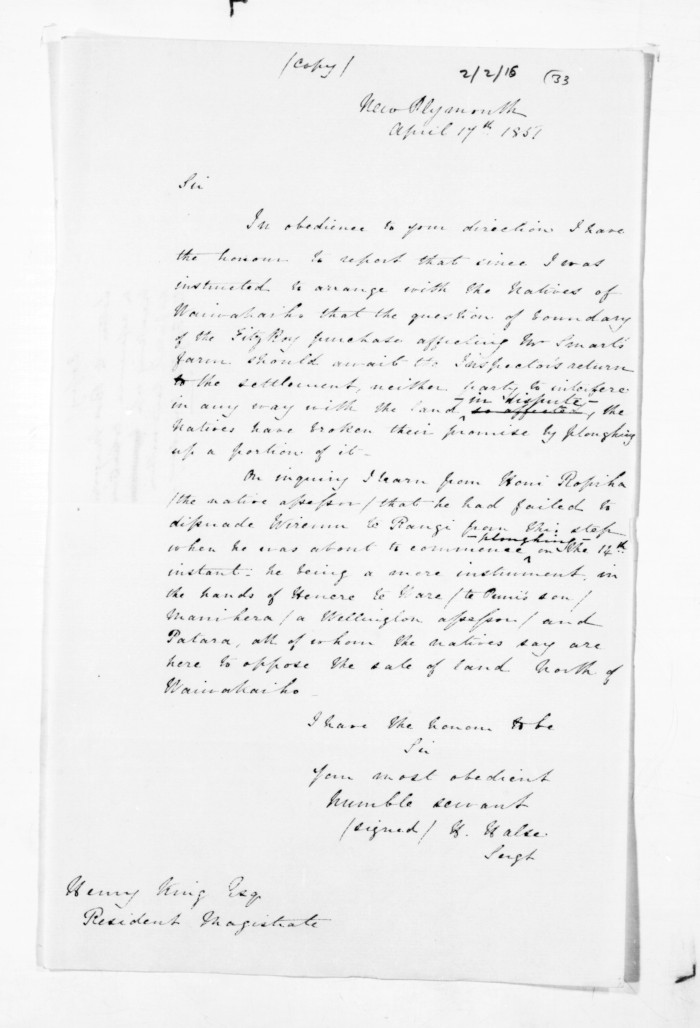 (Copy)
2/2/16 (33
New Plymouth
April 17th 1851
Sir
In obedience to your direction I have
the honour to report that since I was
instructed to arrange with the Natives of
Waiwahaiho that the question of boundary
of the FitzRoy purchase affecting Mr Smart's
farm should await the Inspector's return
to the settlement, neither party to interfere
in any way with the land in dispute so affected, the
Natives have broken their promise by ploughing
up a portion of it.
On inquiry I learn from Honi Ropiha
(the native assessor) that he had failed to
dissuade Wiremu te Rangi from this step
when he was about to commence ploughing on the 14th
instant - he being a mere instrument in
the hands of Henere te Ware (te Puni's son)
Manihera (a Wellington assessor) and
Patara, all of whom the natives say are
here to oppose the sale of land North of
Waiwahaiho -
I have the honour to be
Sir
Your most obedient
humble servant
(signed) H. Halse
Sergt
Henry King Esq
Resident Magistrate